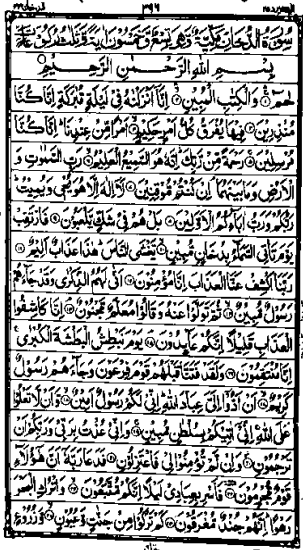 سُورَةُ الدُّخَانِ مَكِّيَّةٌ وَهِيَ تِسْعٌ وَّخَمْسُونَ اٰيَةً وَّثَلٰثُ رُكُوْعَاتٍ
بِسْمِ اللهِ الرَّحْمٰنِ الرَّحِيْمِ
حٰمٓ وَالْكِتٰبِ الْمُبِيْنِ اِنَّآ اَنْزَلْنٰهُ فِيْ لَيْلَةٍ مُّبٰرَكَةٍ اِنَّا كُنَّا
مُنْذِرِيْنَ فِيْهَا يُفْرَقُ كُلُّ اَمْرٍ حَكِيْمٍ اَمْرًا مِّنْ عِنْدِنَا اِنَّا كُنَّا
مُرْسِلِيْنَ رَحْمَةً مِّنْ رَّبِّكَ اِنَّهٗ هُوَ السَّمِيْعُ الْعَلِيْمُ رَبِّ السَّمٰوٰتِ وَ
الْاَرْضِ وَمَا بَيْنَهُمَا اِنْ كُنْتُمْ مُّوْقِنِيْنَ لَآ اِلٰهَ اِلَّا هُوَ يُحْيٖ وَيُمِيْتُ
رَبُّكُمْ وَرَبُّ اٰبَآئِكُمُ الْاَوَّلِيْنَ بَلْ هُمْ فِيْ شَكٍّ يَّلْعَبُوْنَ فَارْتَقِبْ
يَوْمَ تَاْتِي السَّمَآءُ بِدُخَانٍ مُّبِيْنٍ يَّغْشَى النَّاسَ هٰذَا عَذَابٌ اَلِيْمٌ
رَبَّنَا اكْشِفْ عَنَّا الْعَذَابَ اِنَّا مُؤْمِنُوْنَ اَنّٰى لَهُمُ الذِّكْرٰى وَقَدْ جَآءَهُمْ
رَسُوْلٌ مُّبِيْنٌ ثُمَّ تَوَلَّوْا عَنْهُ وَقَالُوْا مُعَلَّمٌ مَّجْنُوْنٌ اِنَّا كَاشِفُوا
الْعَذَابِ قَلِيْلًا اِنَّكُمْ عَآئِدُوْنَ يَوْمَ نَبْطِشُ الْبَطْشَةَ الْكُبْرٰى
اِنَّا مُنْتَقِمُوْنَ وَلَقَدْ فَتَنَّا قَبْلَهُمْ قَوْمَ فِرْعَوْنَ وَجَآءَهُمْ رَسُوْلٌ
كَرِيْمٌ اَنْ اَدُّوْٓا اِلَيَّ عِبَادَ اللهِ اِنِّيْ لَكُمْ رَسُوْلٌ اَمِيْنٌ وَّاَنْ لَّا تَعْلُوْا
عَلَى اللهِ اِنِّيْٓ اٰتِيْكُمْ بِسُلْطٰنٍ مُّبِيْنٍ وَاِنِّيْ عُذْتُ بِرَبِّيْ وَرَبِّكُمْ اَنْ
تَرْجُمُوْنِ وَاِنْ لَّمْ تُؤْمِنُوْا لِيْ فَاعْتَزِلُوْنِ فَدَعَا رَبَّهٗٓ اَنَّ هٰٓؤُلَآءِ
قَوْمٌ مُّجْرِمُوْنَ فَاَسْرِ بِعِبَادِيْ لَيْلًا اِنَّكُمْ مُّتَّبَعُوْنَ وَاتْرُكِ الْبَحْرَ
رَهْوًا اِنَّهُمْ جُنْدٌ مُّغْرَقُوْنَ كَمْ تَرَكُوْا مِنْ جَنّٰتٍ وَّعُيُوْنٍ وَّزُرُوْعٍ